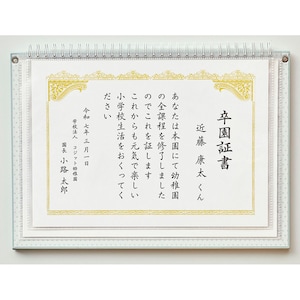 卒園証書
近藤 康太 くん
あなたは本園にて幼稚園
の全課程を修了しました
のでこれを証します
これからも元気で楽しい
小学校生活をおくってく
ださい
令和七年三月一日
学校法人 コジット幼稚園
園長 小路 太郎